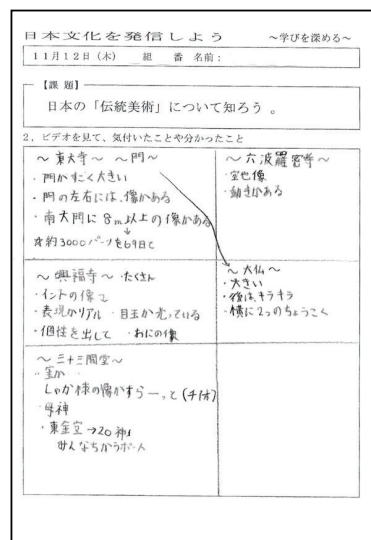 日本文化を発信しよう ～学びを深める～
11月12日(木) 組 番 名前:
【課題】
日本の「伝統美術」について知ろう。
2, ビデオを見て、気付いたことや分かったこと
～東大寺～ ～門～
・門がすごく大きい
・門の左右には、像がある
・南大門に8m以上の像がある
↓
※約3000パーツを69日で
～六波羅密寺～
・空也像
・動きがある
～興福寺～ ・たくさん
・インドの像で
・表現がリアル ・目玉が光っている
・個性を出して ・おにの像
～大仏～
・大きい
・後は、キラキラ
・横に2つのちょうこく
～三十三間堂～
しゃか様の像がずらーっと(千体)
・母神
・東金堂→20神
みんなちがうポーズ